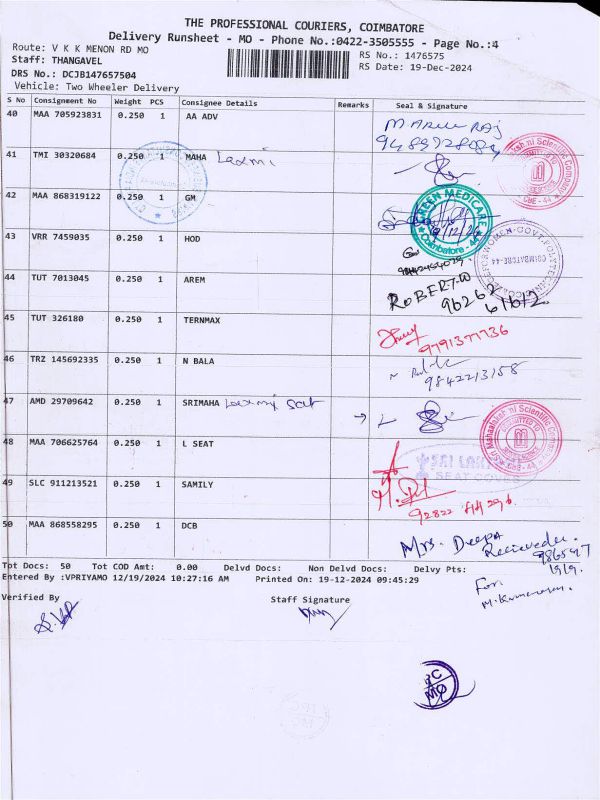 THE PROFESSIONAL COURIERS, COIMBATORE
Delivery Runsheet - MO - Phone No.:0422-3505555 - Page No.:4
Route: V K K MENON RD MO
RS No.: 1476575
Staff: THANGAVEL
RS Date: 19-Dec-2024
DRS No.: DCJB147657504
Vehicle: Two Wheeler Delivery
S No Consignment No Weight PCS Consignee Details Remarks Seal & Signature
40 MAA 705923831 0.250 1 AA ADV
41 TMI 30320684 0.250 1 MAHA Laxmi
42 MAA 868319122 0.250 1 GM GREEN MEDICARE Coimbatore - 44
43 VRR 7459035 0.250 1 HOD COIMBATORE-44
44 TUT 7013045 0.250 1 AREM ROBERT.W
45 TUT 326180 0.250 1 TERNMAX 9791371736
46 TRZ 145692335 0.250 1 N BALA 9842213158
47 AMD 29709642 0.250 1 SRIMAHA Laxmi
48 MAA 706625764 0.250 1 L SEAT
49 SLC 911213521 0.250 1 SAMILY
50 MAA 868558295 0.250 1 DCB Mrs. Deepa
Tot Docs: 50 Tot COD Amt: 0.00 Delvd Docs: Non Delvd Docs: Delvy Pts:
Entered By :VPRIYAMO 12/19/2024 10:27:16 AM Printed On: 19-12-2024 09:45:29
For
Verified By Staff Signature